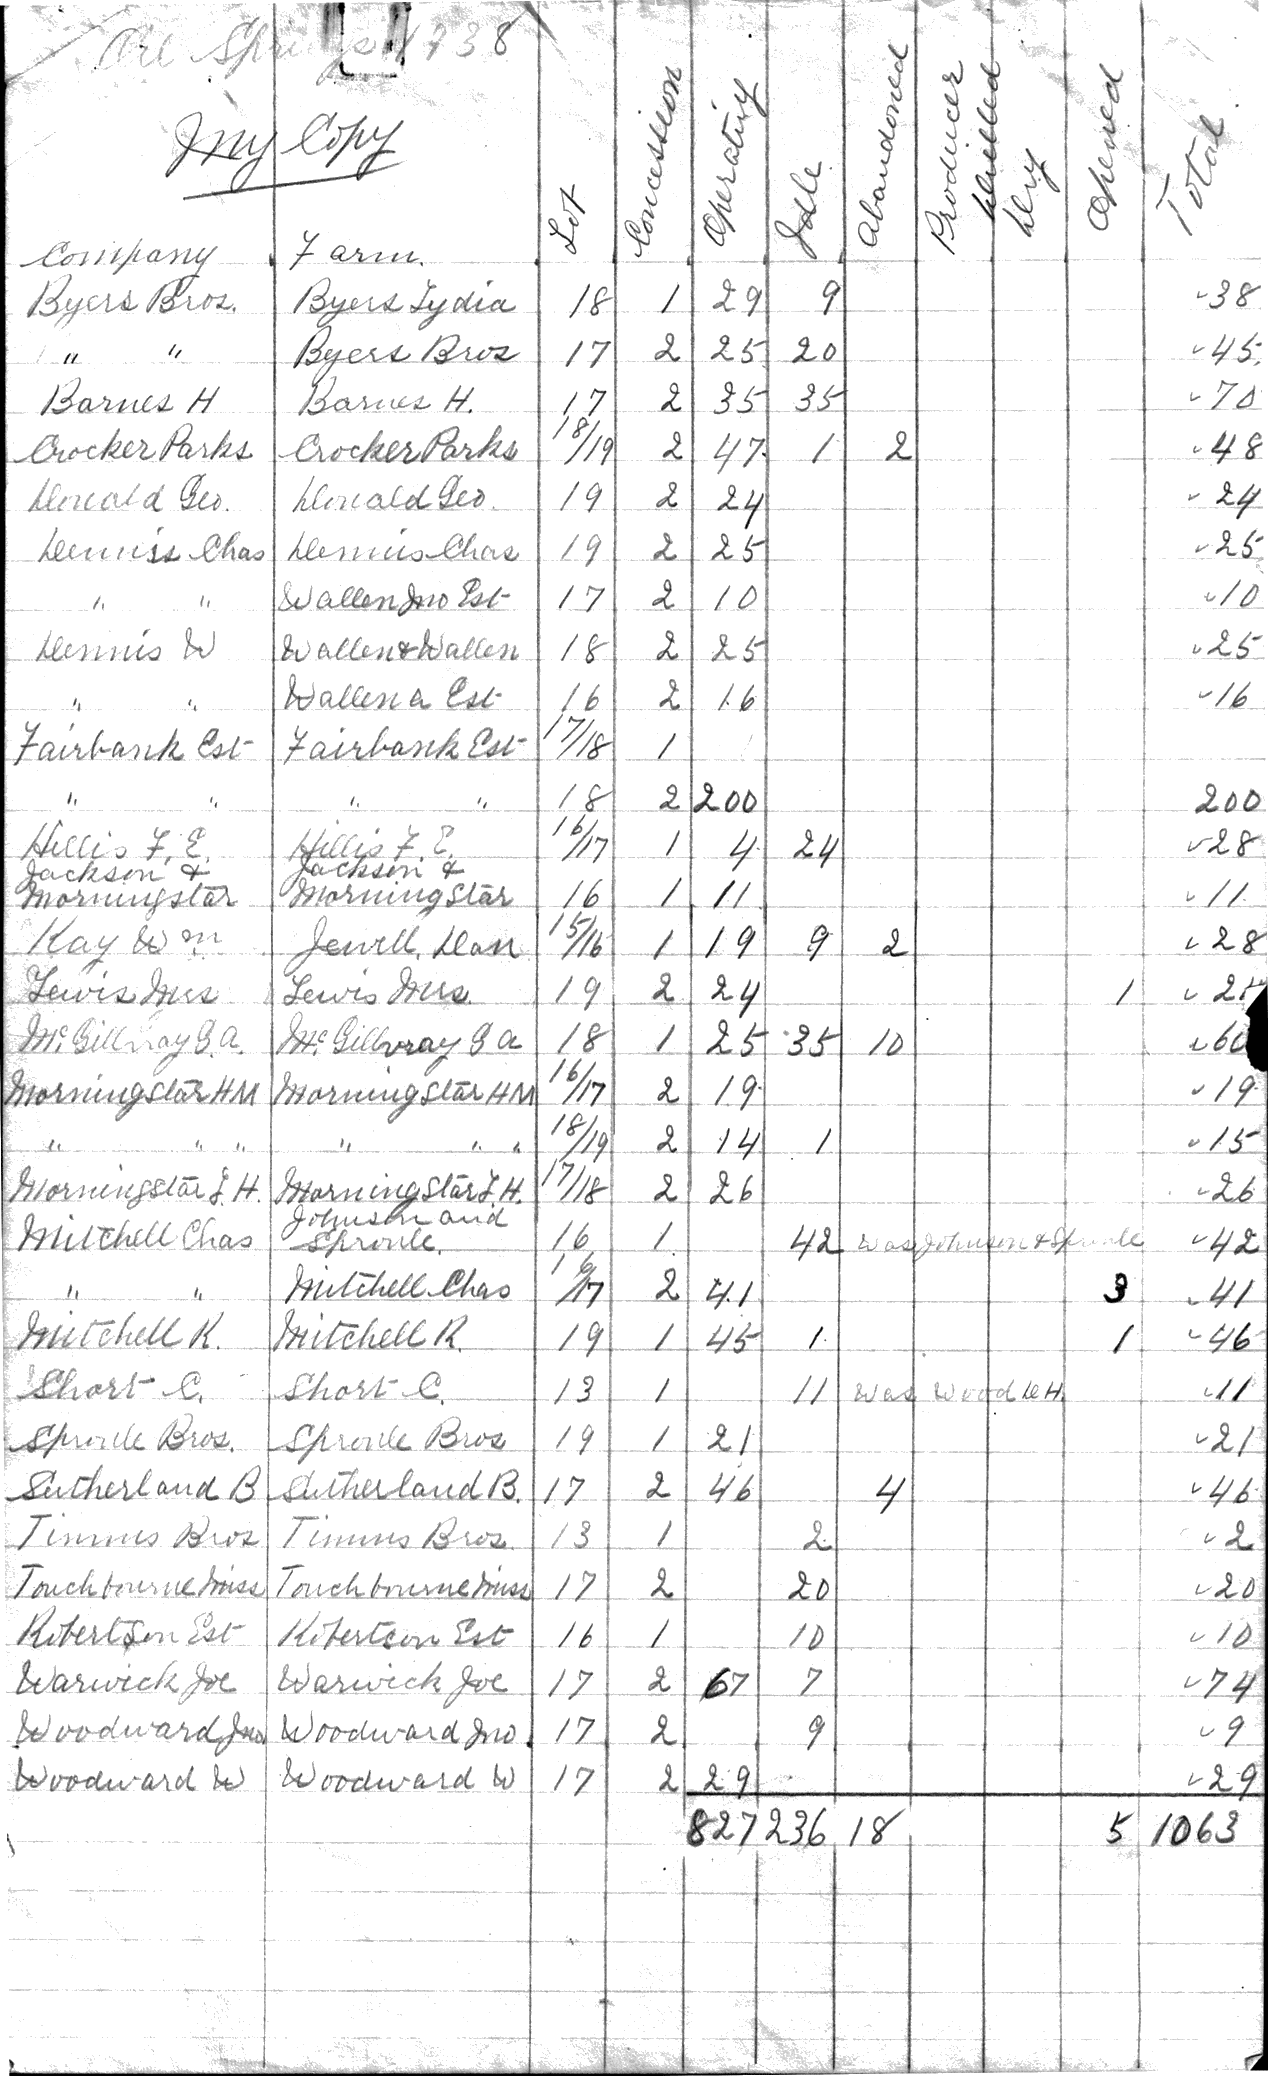 Oil Springs 1938
My Copy
Company Farm. Lot Concession Operating Idle Abandoned Producer Drilled Dry Opened Total
Byers Bros. Byers Lydia 18 1 29 9 38
" " Byers Bros 17 2 25 20 45
Barnes H Barnes H. 17 2 35 35 70
Crocker Parks Crocker Parks 18/19 2 47 1 2 48
Donald Geo. Donald Geo. 19 2 24 24
Dennis Chas Dennis Chas 19 2 25 25
" " Wallen Jno Est 17 2 10 10
Dennis W Wallen & Wallen 18 2 25 25
" " Wallen A Est 16 2 16 16
Fairbank Est Fairbank Est 17/18 1
" " " " 18 2 200 200
Hillis F. E. Hillis F. E. 16/17 1 4 24 28
Jackson & Jackson &
Morningstar Morningstar 16 1 11 11
Kay Wm Jewell, Dan 15/16 1 19 9 2 28
Lewis Mrs Lewis Mrs. 19 2 24 1 25
McGillvray G. A. McGillvray G A 18 1 25 35 10 60
Morningstar H M Morningstar H M 16/17 2 19 19
" " " " " " 18/19 2 14 1 15
Morningstar L. H. Morningstar L. H. 17/18 2 26 26
Johnson and
Mitchell Chas Sproule. 16 1 42 Was Johnson & Sproule 42
" " Mitchell Chas 16/17 2 41 3 41
Mitchell R. Mitchell R. 19 1 45 1 1 46
Short C. Short C. 13 1 11 Was Wood D H. 11
Sproule Bros. Sproule Bros 19 1 21 21
Sutherland B Sutherland B. 17 2 46 4 46
Timms Bros Timms Bros. 13 1 2 2
Touchbourne Miss Touchbourne Miss 17 2 20 20
Robertson Est Robertson Est 16 1 10 10
Warwick Joe Warwick Joe 17 2 67 7 74
Woodward Jno. Woodward Jno. 17 2 9 9
Woodward W Woodward W 17 2 29 29
827 236 18 5 1063